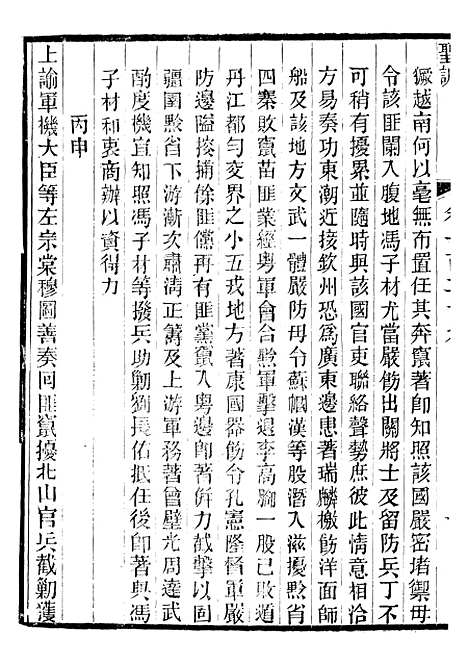 聖訓
獗越南何以毫無布置任其奔竄著卽知照該國嚴密堵禦毋
令該匪闌入腹地馮子材尤當嚴飭出關將士及留防兵丁不
可稍有擾累並隨時與該國官吏聯絡聲勢庶彼此情意相洽
方易奏功東潮近接欽州恐爲廣東邊患著瑞麟檄飭洋面師
船及該地方文武一體嚴防毋令蘇幗漢等股潛入滋擾粵師
四寨敗竄苗匪業經粵軍會合黔軍擊退李高胸一股已敗遁
丹江都勻交界之小五戎地方著康國器飭令孔憲隆督軍嚴
防邊隘搜捕餘匪儻再有匪黨竄入粵邊卽著併力截擊以固
疆圉黔省下游漸次肅清正籌及上游軍務著曾璧光周達武
酌度機宜知照馮子材等撥兵助勦劉長佑抵任後卽著與馮
子材和衷商辦以資得力
丙申
上諭軍機大臣等左宗棠穆圖善奏回匪竄擾北山官兵截勦獲